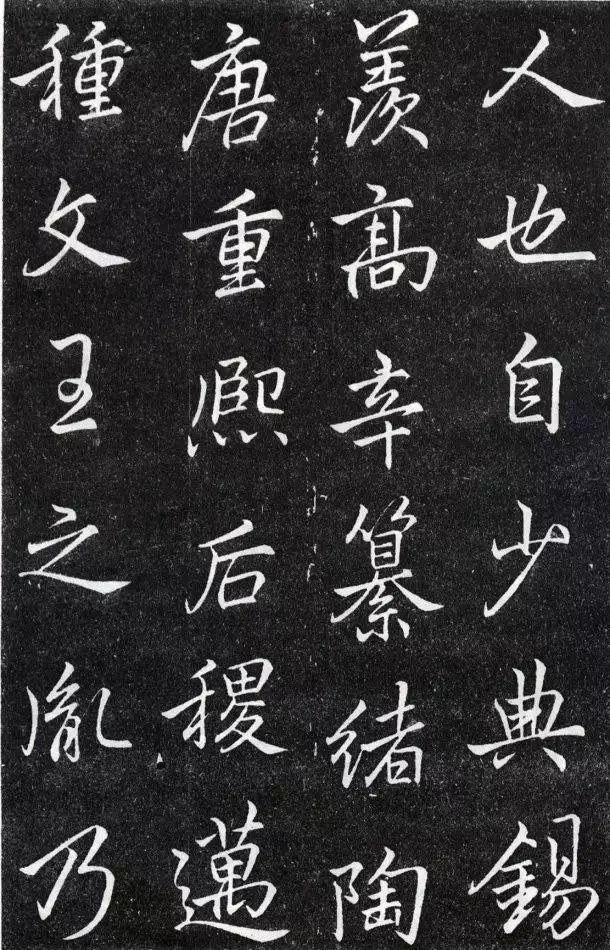 人也自少典錫
羡髙辛纂緒陶
唐重熈后稷邁
種文王之胤乃